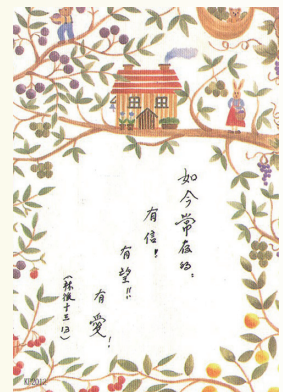 如今常存的。
有信！
有望！！
有愛！
（林後十三13）